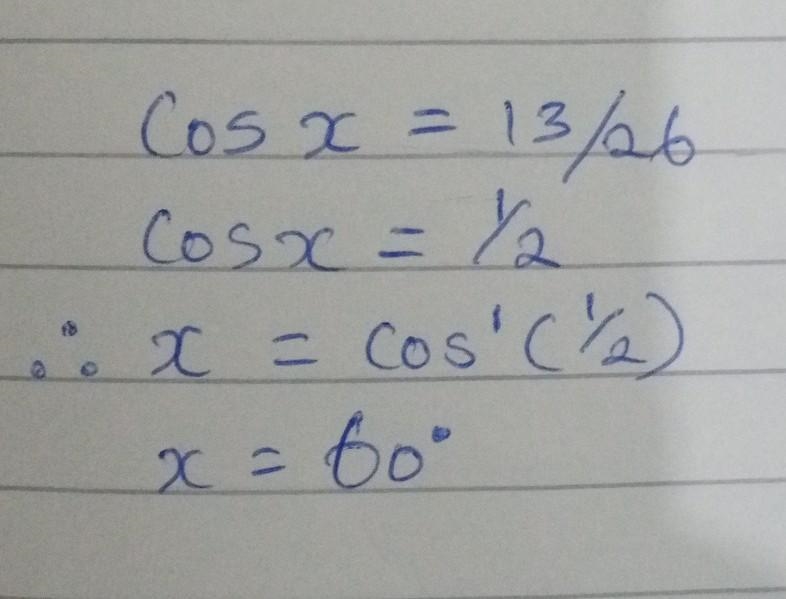 Cos x = 13/26
Cos x = 1/2
∴ x = Cos'(1/2)
x = 60°